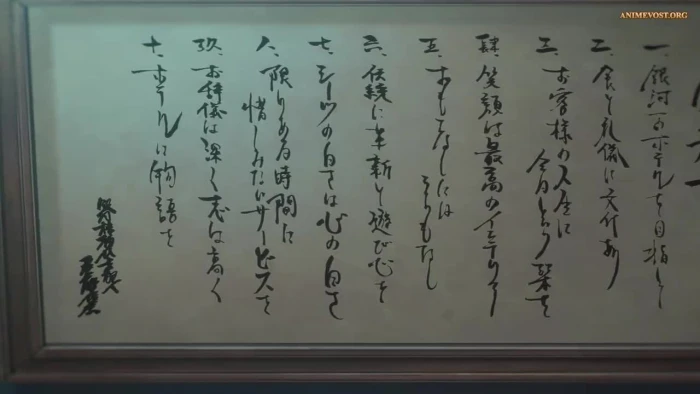 ANIMEVOST.ORG
一、銀河一のホテルを目指して
二、
三、お客様の人生に
今日という栞を
肆、笑顔は最高のインテリア
五、おもてなしにはうらもなし
六、伝統に革新と遊び心を
七、シーツの白さは心の白さ
八、限りある時間に
惜しみないサービスを
玖、お辞儀は深く志は高く
十、ホテルに物語を